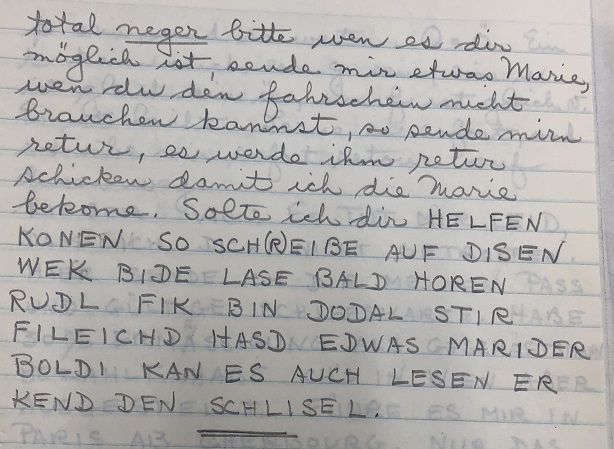 total neger bitte wen es dir
möglich ist, sende mir etwas Marie,
wen du den fahrschein nicht
brauchen kannst, so sende mirn
retur, es werde ihm retur
schicken damit ich die Marie
bekome. Solte ich dir HELFEN
KONEN SO SCH(R)EIBE AUF DISEN
WEK BIDE LASE BALD HOREN
RUDL FIK BIN DODAL STIR
FILEICHD HASD EDWAS MARIDER
BOLDI KAN ES AUCH LESEN ER
KEND DEN SCHLISEL.